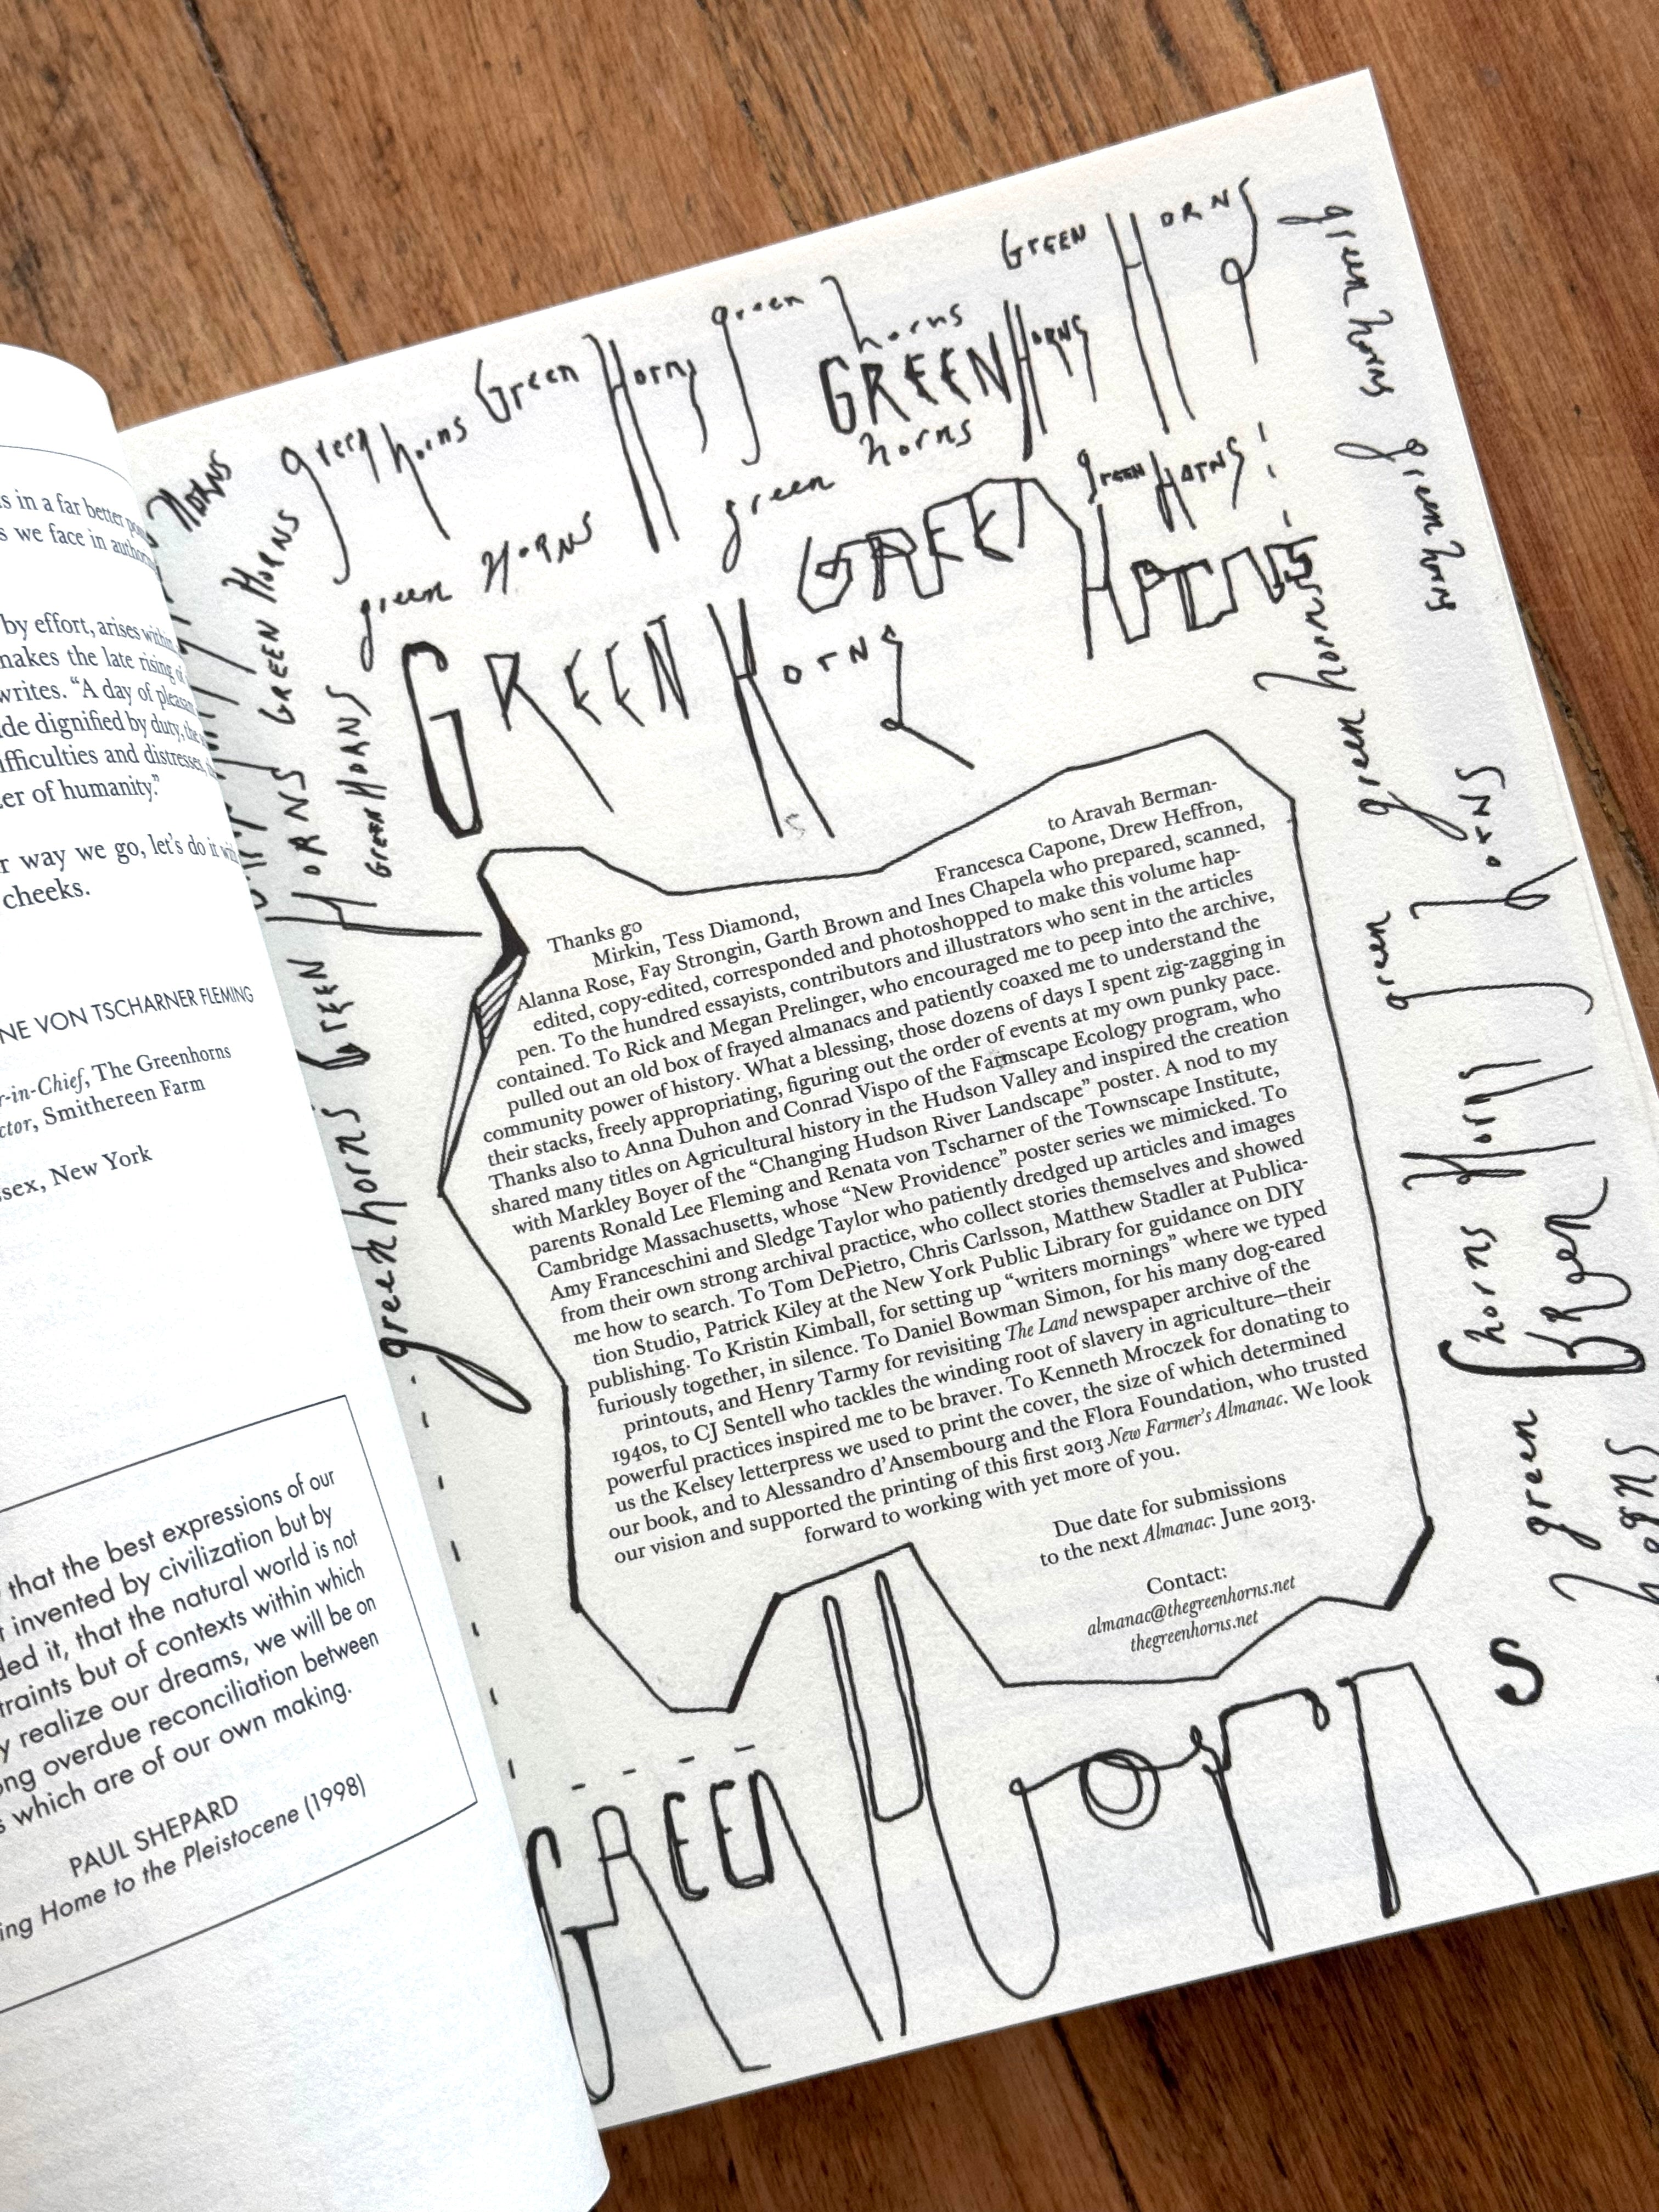 s in a far better
s we face in
by effort, arises
makes the late rising
writes. “A day of
de dignified by duty,
fficulties and distresses,
er of humanity.”
r way we go, let’s do it
cheeks.
NE VON TSCHARNER FLEMING
r-in-Chief, The Greenhorns
ctor, Smithereen Farm
sex, New York
that the best expressions of our
invented by civilization but by
ded it, that the natural world is not
traints but of contexts within which
y realize our dreams, we will be on
ng overdue reconciliation between
s which are of our own making.
PAUL SHEPARD
ing Home to the Pleistocene (1998)
HORNS
green horns
Green Horns
green horns
GREEN HORNS
GREEN HORNS
green horns
green HORNS
green horns
GREEN HORNS
GREEN HORNS
green HORNS
GREEN HORNS
GREEN HORNS
GREEN HORNS
GREEN HORNS
green horns
green horns
green horns
green horns
green HORNS
Thanks go to Aravah Berman-
Mirkin, Tess Diamond, Francesca Capone, Drew Heffron,
Alanna Rose, Fay Strongin, Garth Brown and Ines Chapela who prepared, scanned,
edited, copy-edited, corresponded and photoshopped to make this volume hap-
pen. To the hundred essayists, contributors and illustrators who sent in the articles
contained. To Rick and Megan Prelinger, who encouraged me to peep into the archive,
pulled out an old box of frayed almanacs and patiently coaxed me to understand the
community power of history. What a blessing, those dozens of days I spent zig-zagging in
their stacks, freely appropriating, figuring out the order of events at my own punky pace.
Thanks also to Anna Duhon and Conrad Vispo of the Farmscape Ecology program, who
shared many titles on Agricultural history in the Hudson Valley and inspired the creation
with Markley Boyer of the “Changing Hudson River Landscape” poster. A nod to my
parents Ronald Lee Fleming and Renata von Tscharner of the Townscape Institute,
Cambridge Massachusetts, whose “New Providence” poster series we mimicked. To
Amy Franceschini and Sledge Taylor who patiently dredged up articles and images
from their own strong archival practice, who collect stories themselves and showed
me how to search. To Tom DePietro, Chris Carlsson, Matthew Stadler at Publica-
tion Studio, Patrick Kiley at the New York Public Library for guidance on DIY
publishing. To Kristin Kimball, for setting up “writers mornings” where we typed
furiously together, in silence. To Daniel Bowman Simon, for his many dog-eared
printouts, and Henry Tarmy for revisiting The Land newspaper archive of the
1940s, to CJ Sentell who tackles the winding root of slavery in agriculture—their
powerful practices inspired me to be braver. To Kenneth Mroczek for donating to
us the Kelsey letterpress we used to print the cover, the size of which determined
our book, and to Alessandro d’Ansembourg and the Flora Foundation, who trusted
our vision and supported the printing of this first 2013 New Farmer’s Almanac. We look
forward to working with yet more of you.
Due date for submissions
to the next Almanac: June 2013.
Contact:
almanac@thegreenhorns.net
thegreenhorns.net
green horns
Green Horns
green horns
GREEN Horn S